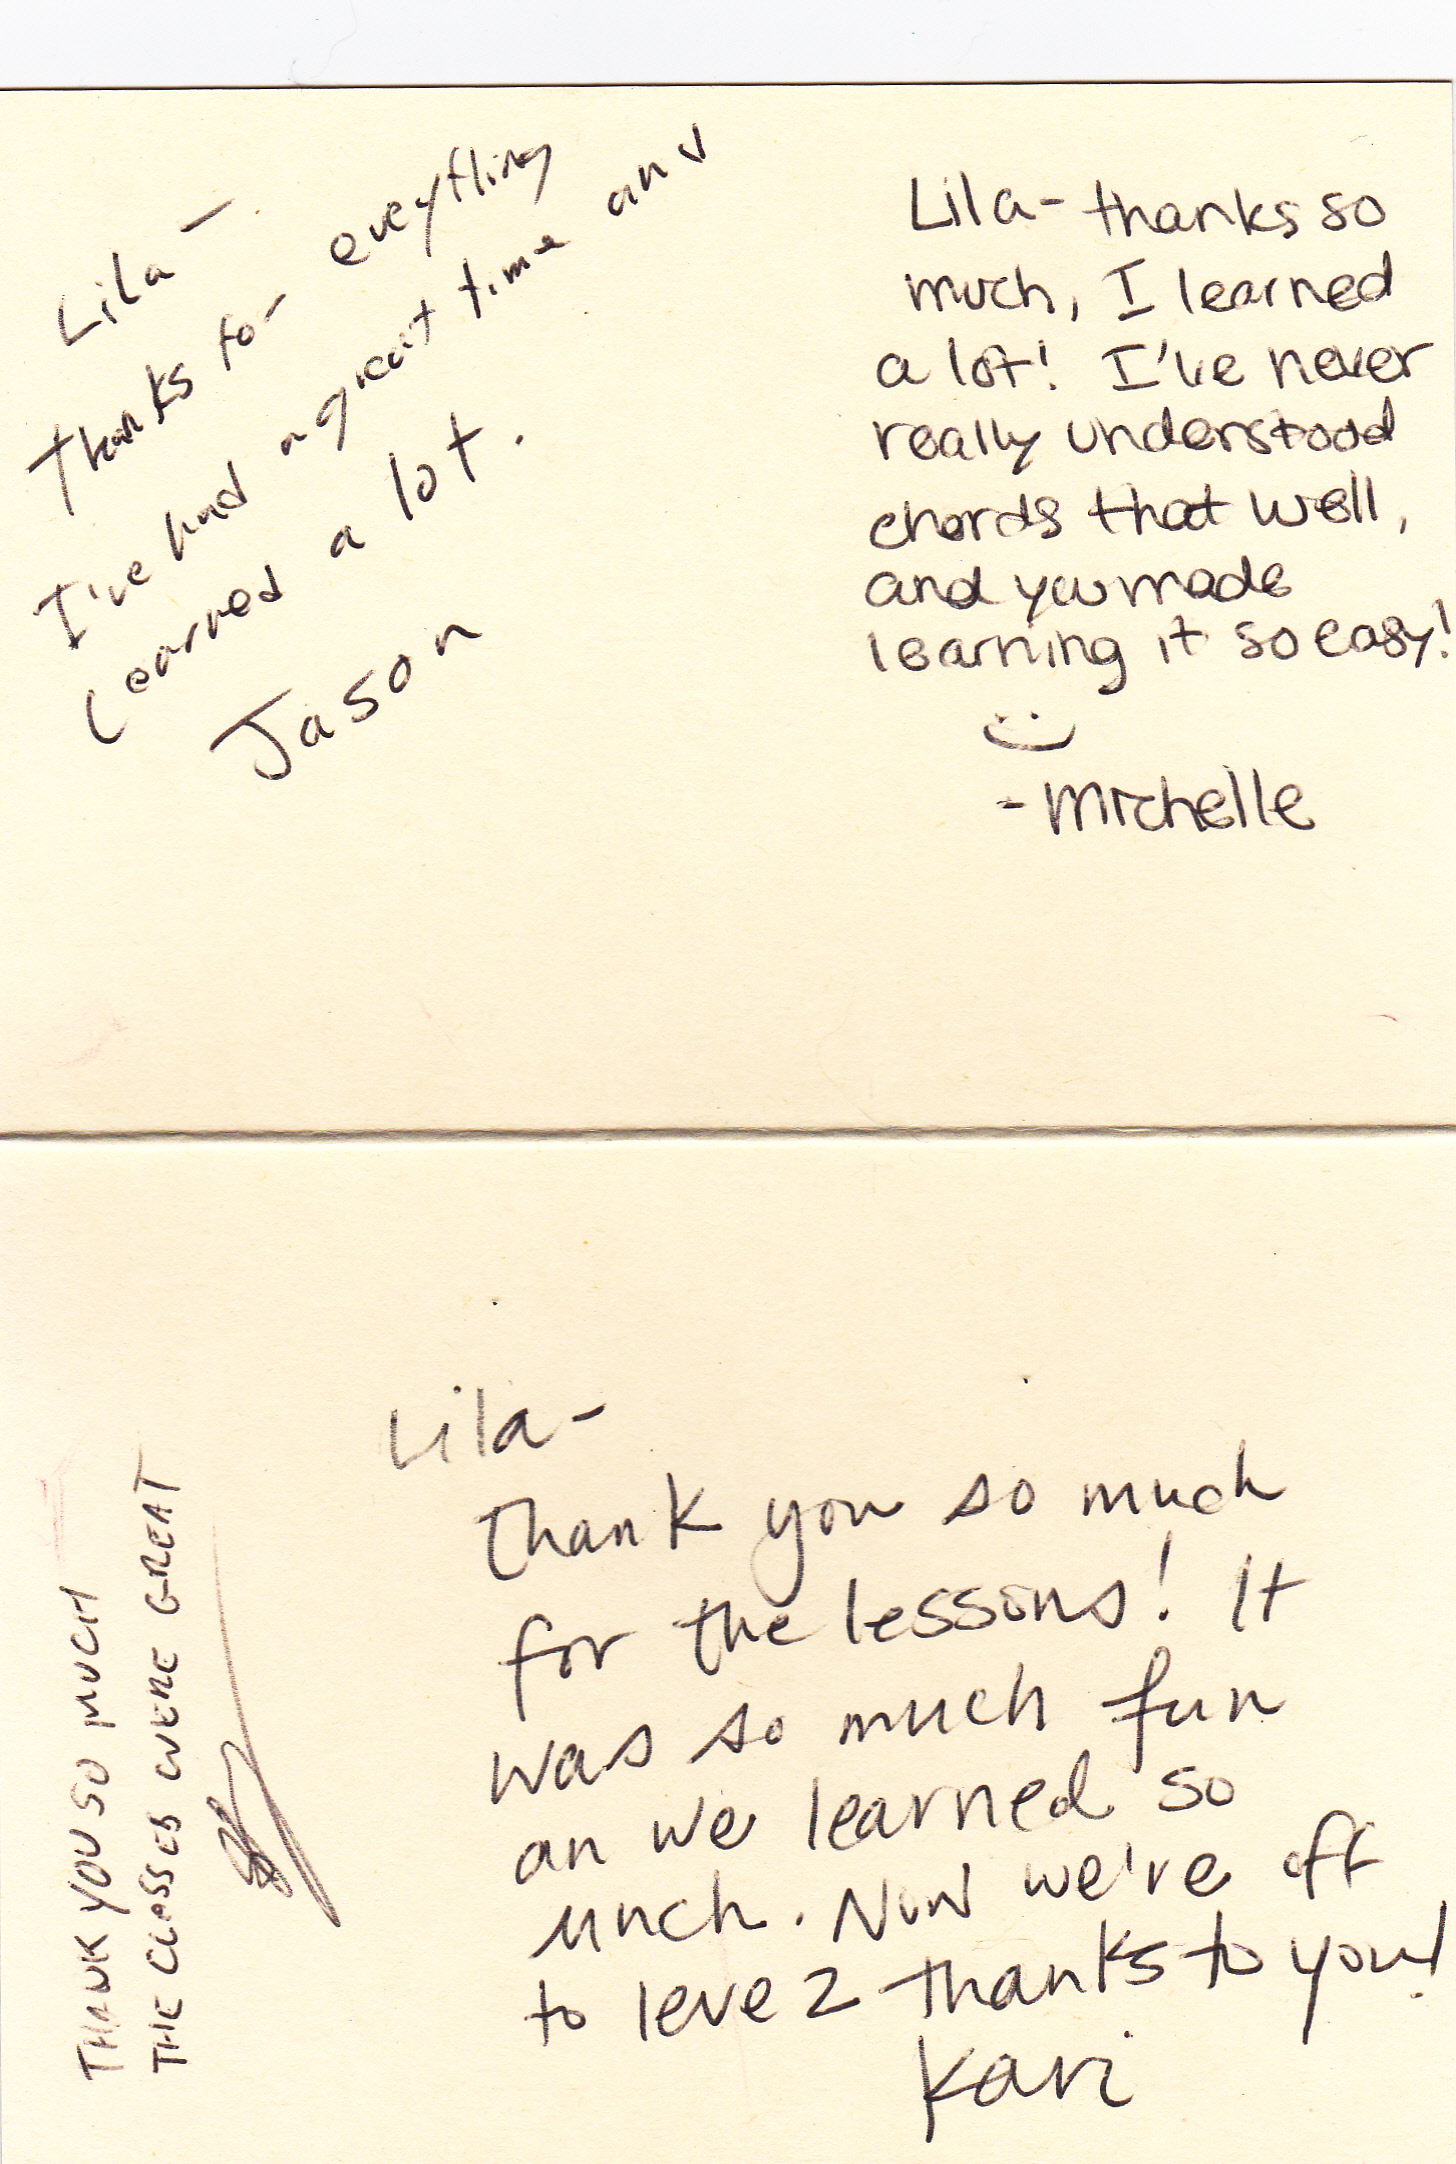 Lila -
Thanks for eveything
I've had a great time and
Learned a lot.
Jason
Lila - thanks so
much, I learned
a lot! I've never
really understood
chords that well,
and you made
learning it so easy!
- Michelle
THANK YOU SO MUCH
THE CLASSES WERE GREAT
Lila -
Thank you so much
for the lessons! It
was so much fun
an we learned so
much. Now we're off
to leve 2 thanks to you!
Kari